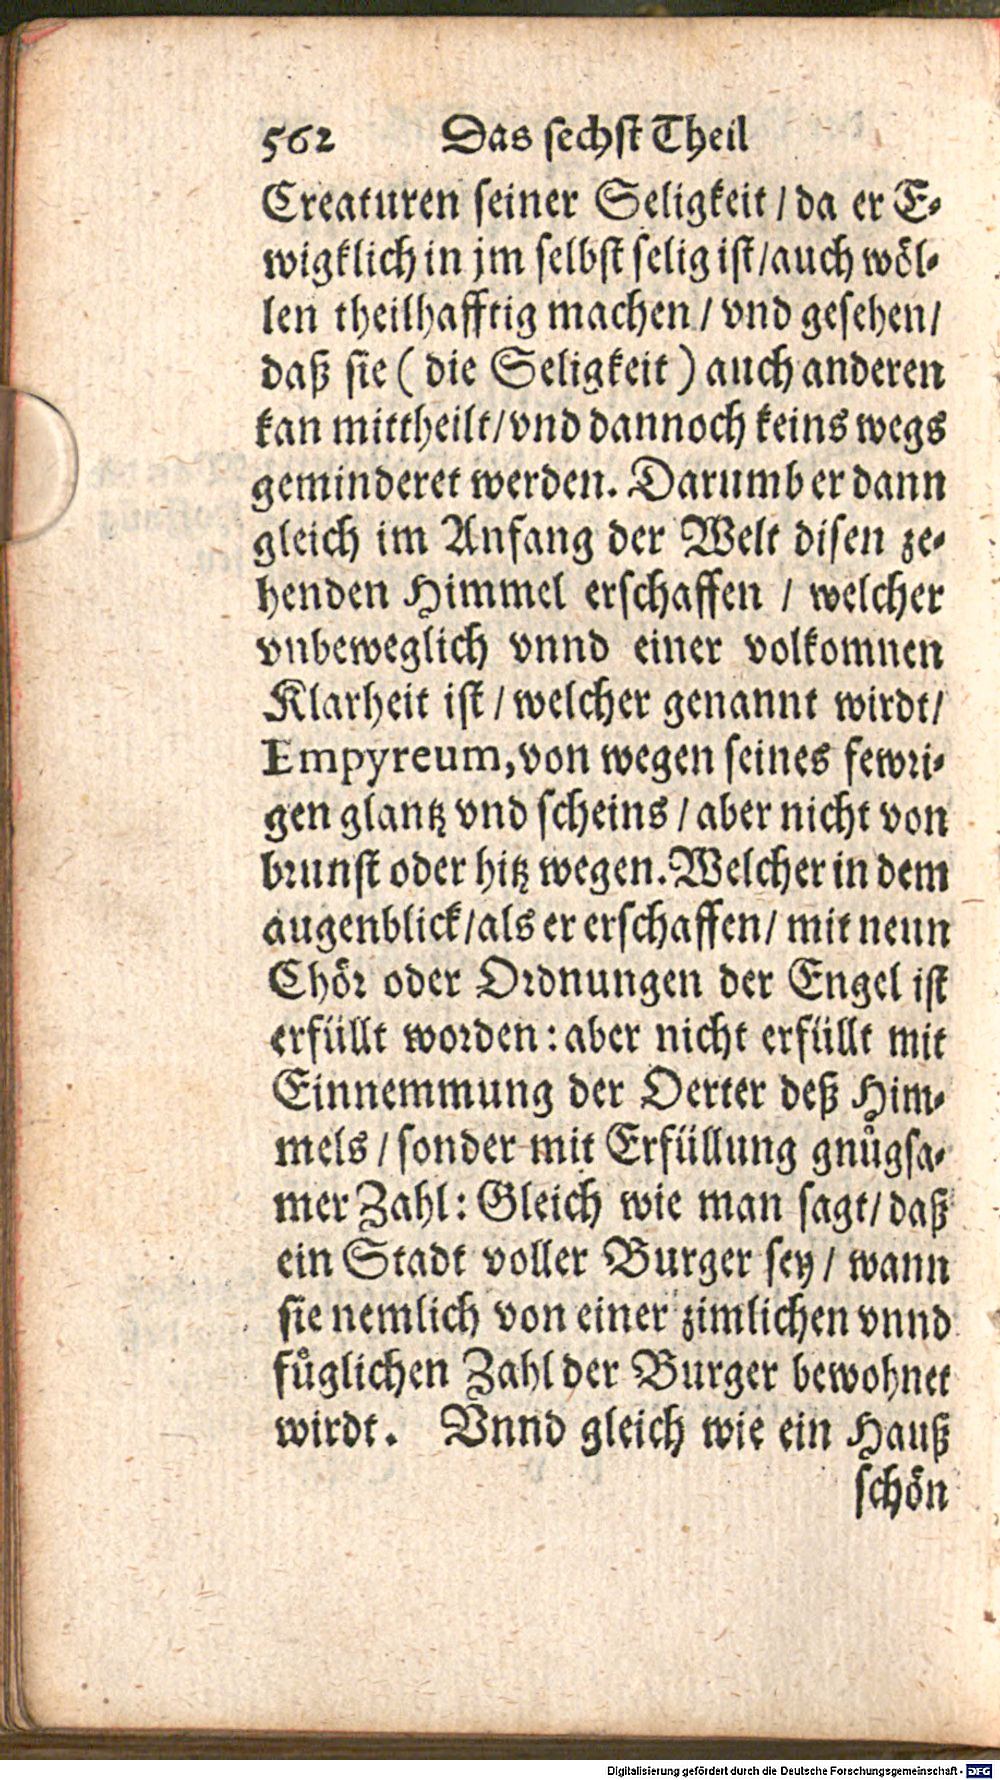 562 Das sechst Theil
Creaturen seiner Seligkeit / da er E-
wigklich in jm selbst selig ist / auch wöl-
len theilhafftig machen / vnd gesehen /
daß sie ( die Seligkeit ) auch anderen
kan mittheilt / vnd dannoch keins wegs
geminderet werden. Darumb er dann
gleich im Anfang der Welt disen ze-
henden Himmel erschaffen / welcher
vnbeweglich vnnd einer volkomnen
Klarheit ist / welcher genannt wirdt /
Empyreum, von wegen seines fewri-
gen glantz vnd scheins / aber nicht von
brunst oder hitz wegen. Welcher in dem
augenblick / als er erschaffen / mit neun
Chör oder Ordnungen der Engel ist
erfüllt worden : aber nicht erfüllt mit
Einnemmung der Oerter deß Him-
mels / sonder mit Erfüllung gnůgsa-
mer Zahl : Gleich wie man sagt / daß
ein Stadt voller Burger sey / wann
sie nemlich von einer zimlichen vnnd
fůglichen Zahl der Burger bewohnet
wirdt. Vnnd gleich wie ein Hauß
schön
Digitalisierung gefördert durch die Deutsche Forschungsgemeinschaft - DFG